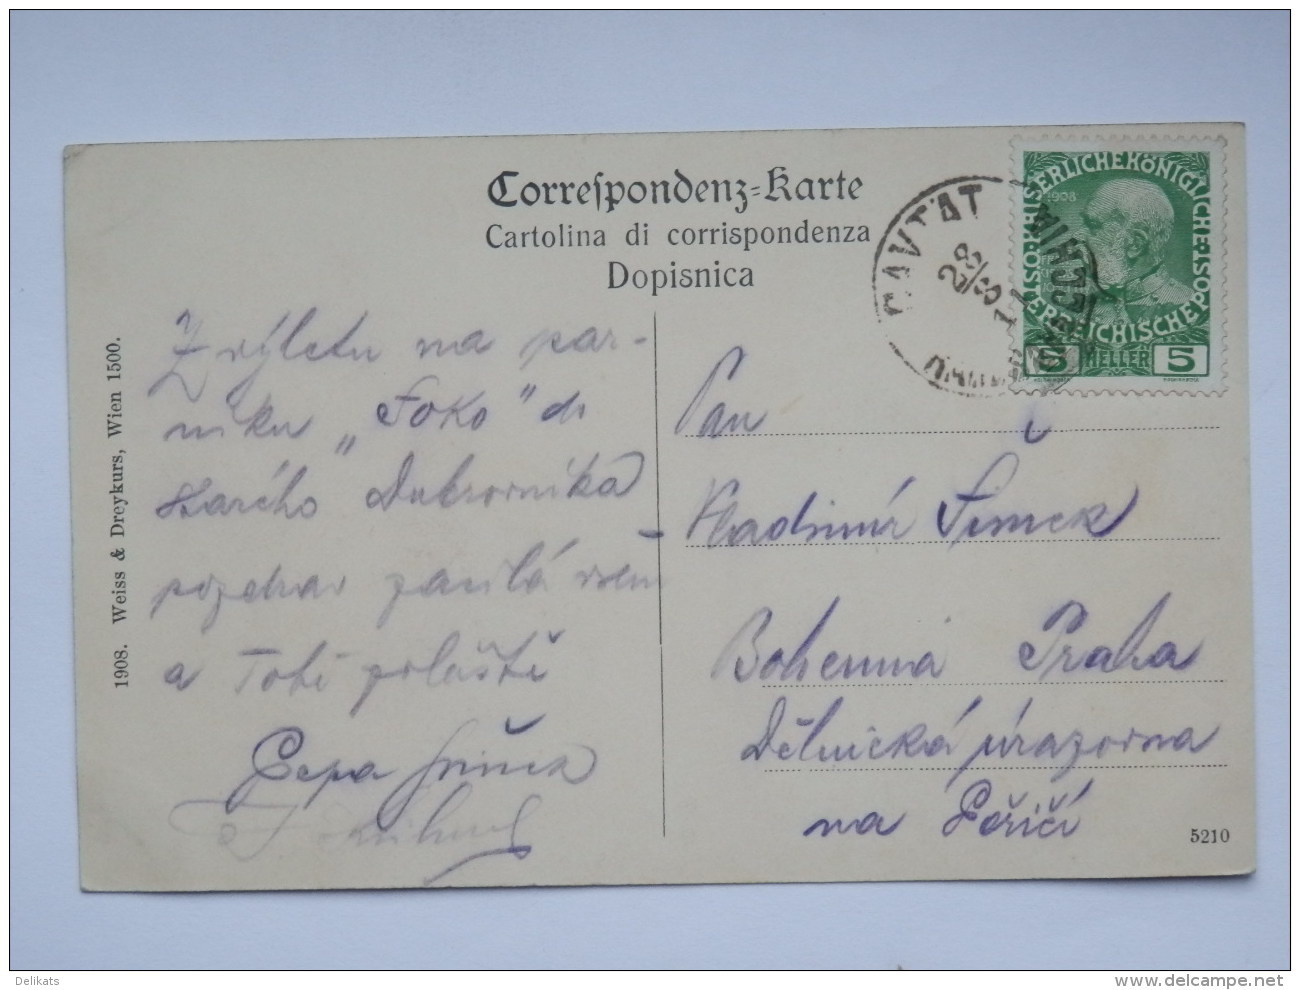 Correspondenz-Karte
Cartolina di corrispondenza
Dopisnica
CAVTAT
RAGUSAVECCHIA
28/8 11
1908
KAISERLICHE KÖNIGLICHE ÖSTERREICHISCHE POST
5 HELLER 5
Z výletu na par-
níku „Foko" do
starého Dubrovníka
pozdrav zasílá všem
a Tobě zvláště
Pepa
Pan
Vladimír Šimek
Bohemia Praha
Dělnická úrazovna
na Poříčí
1908. Weiss & Dreykurs, Wien 1500.
5210
Delikats
www.delcampe.net